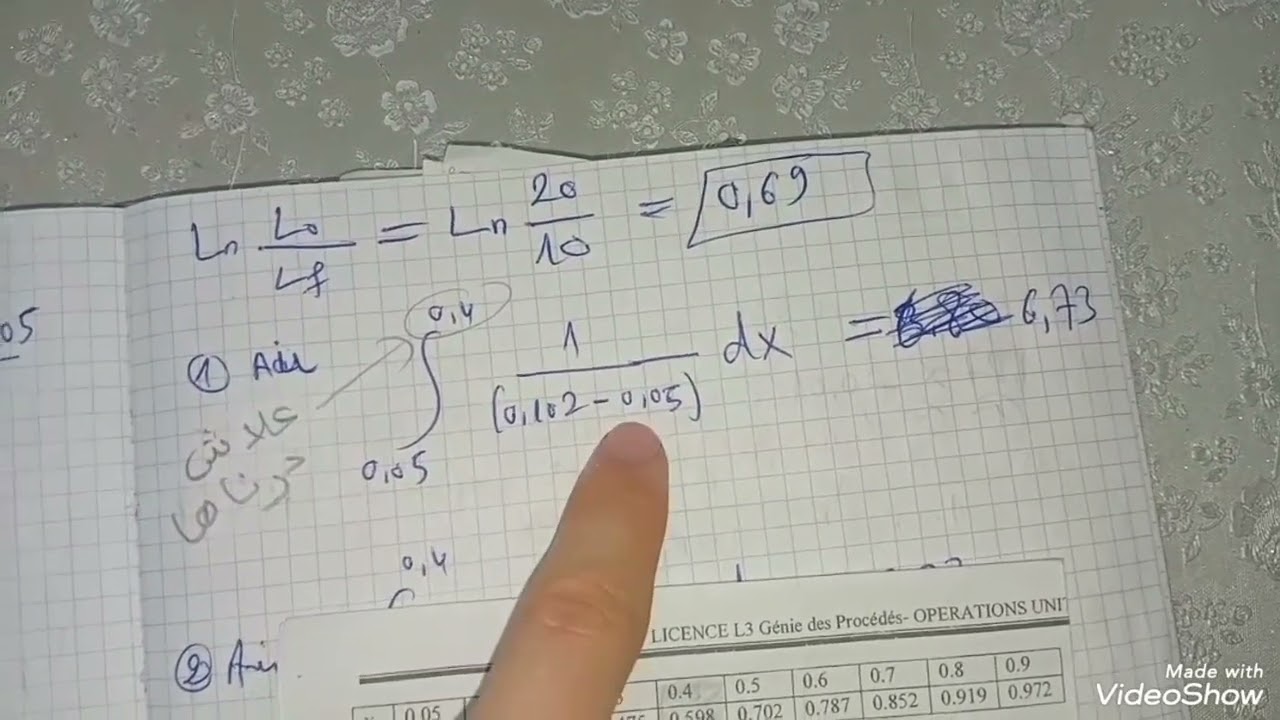 Ln Lo/Lf = Ln 20/10 = 0,69
05
① Aire ∫ 0,4 0,05 1/(0,102 - 0,05) dx = 6,73
علاش
درناها
0,4
② Aire
LICENCE L3 Génie des Procédés- OPERATIONS UNIT
0.4 0.5 0.6 0.7 0.8 0.9
0.05 0.598 0.702 0.787 0.852 0.919 0.972
Made with
VideoShow